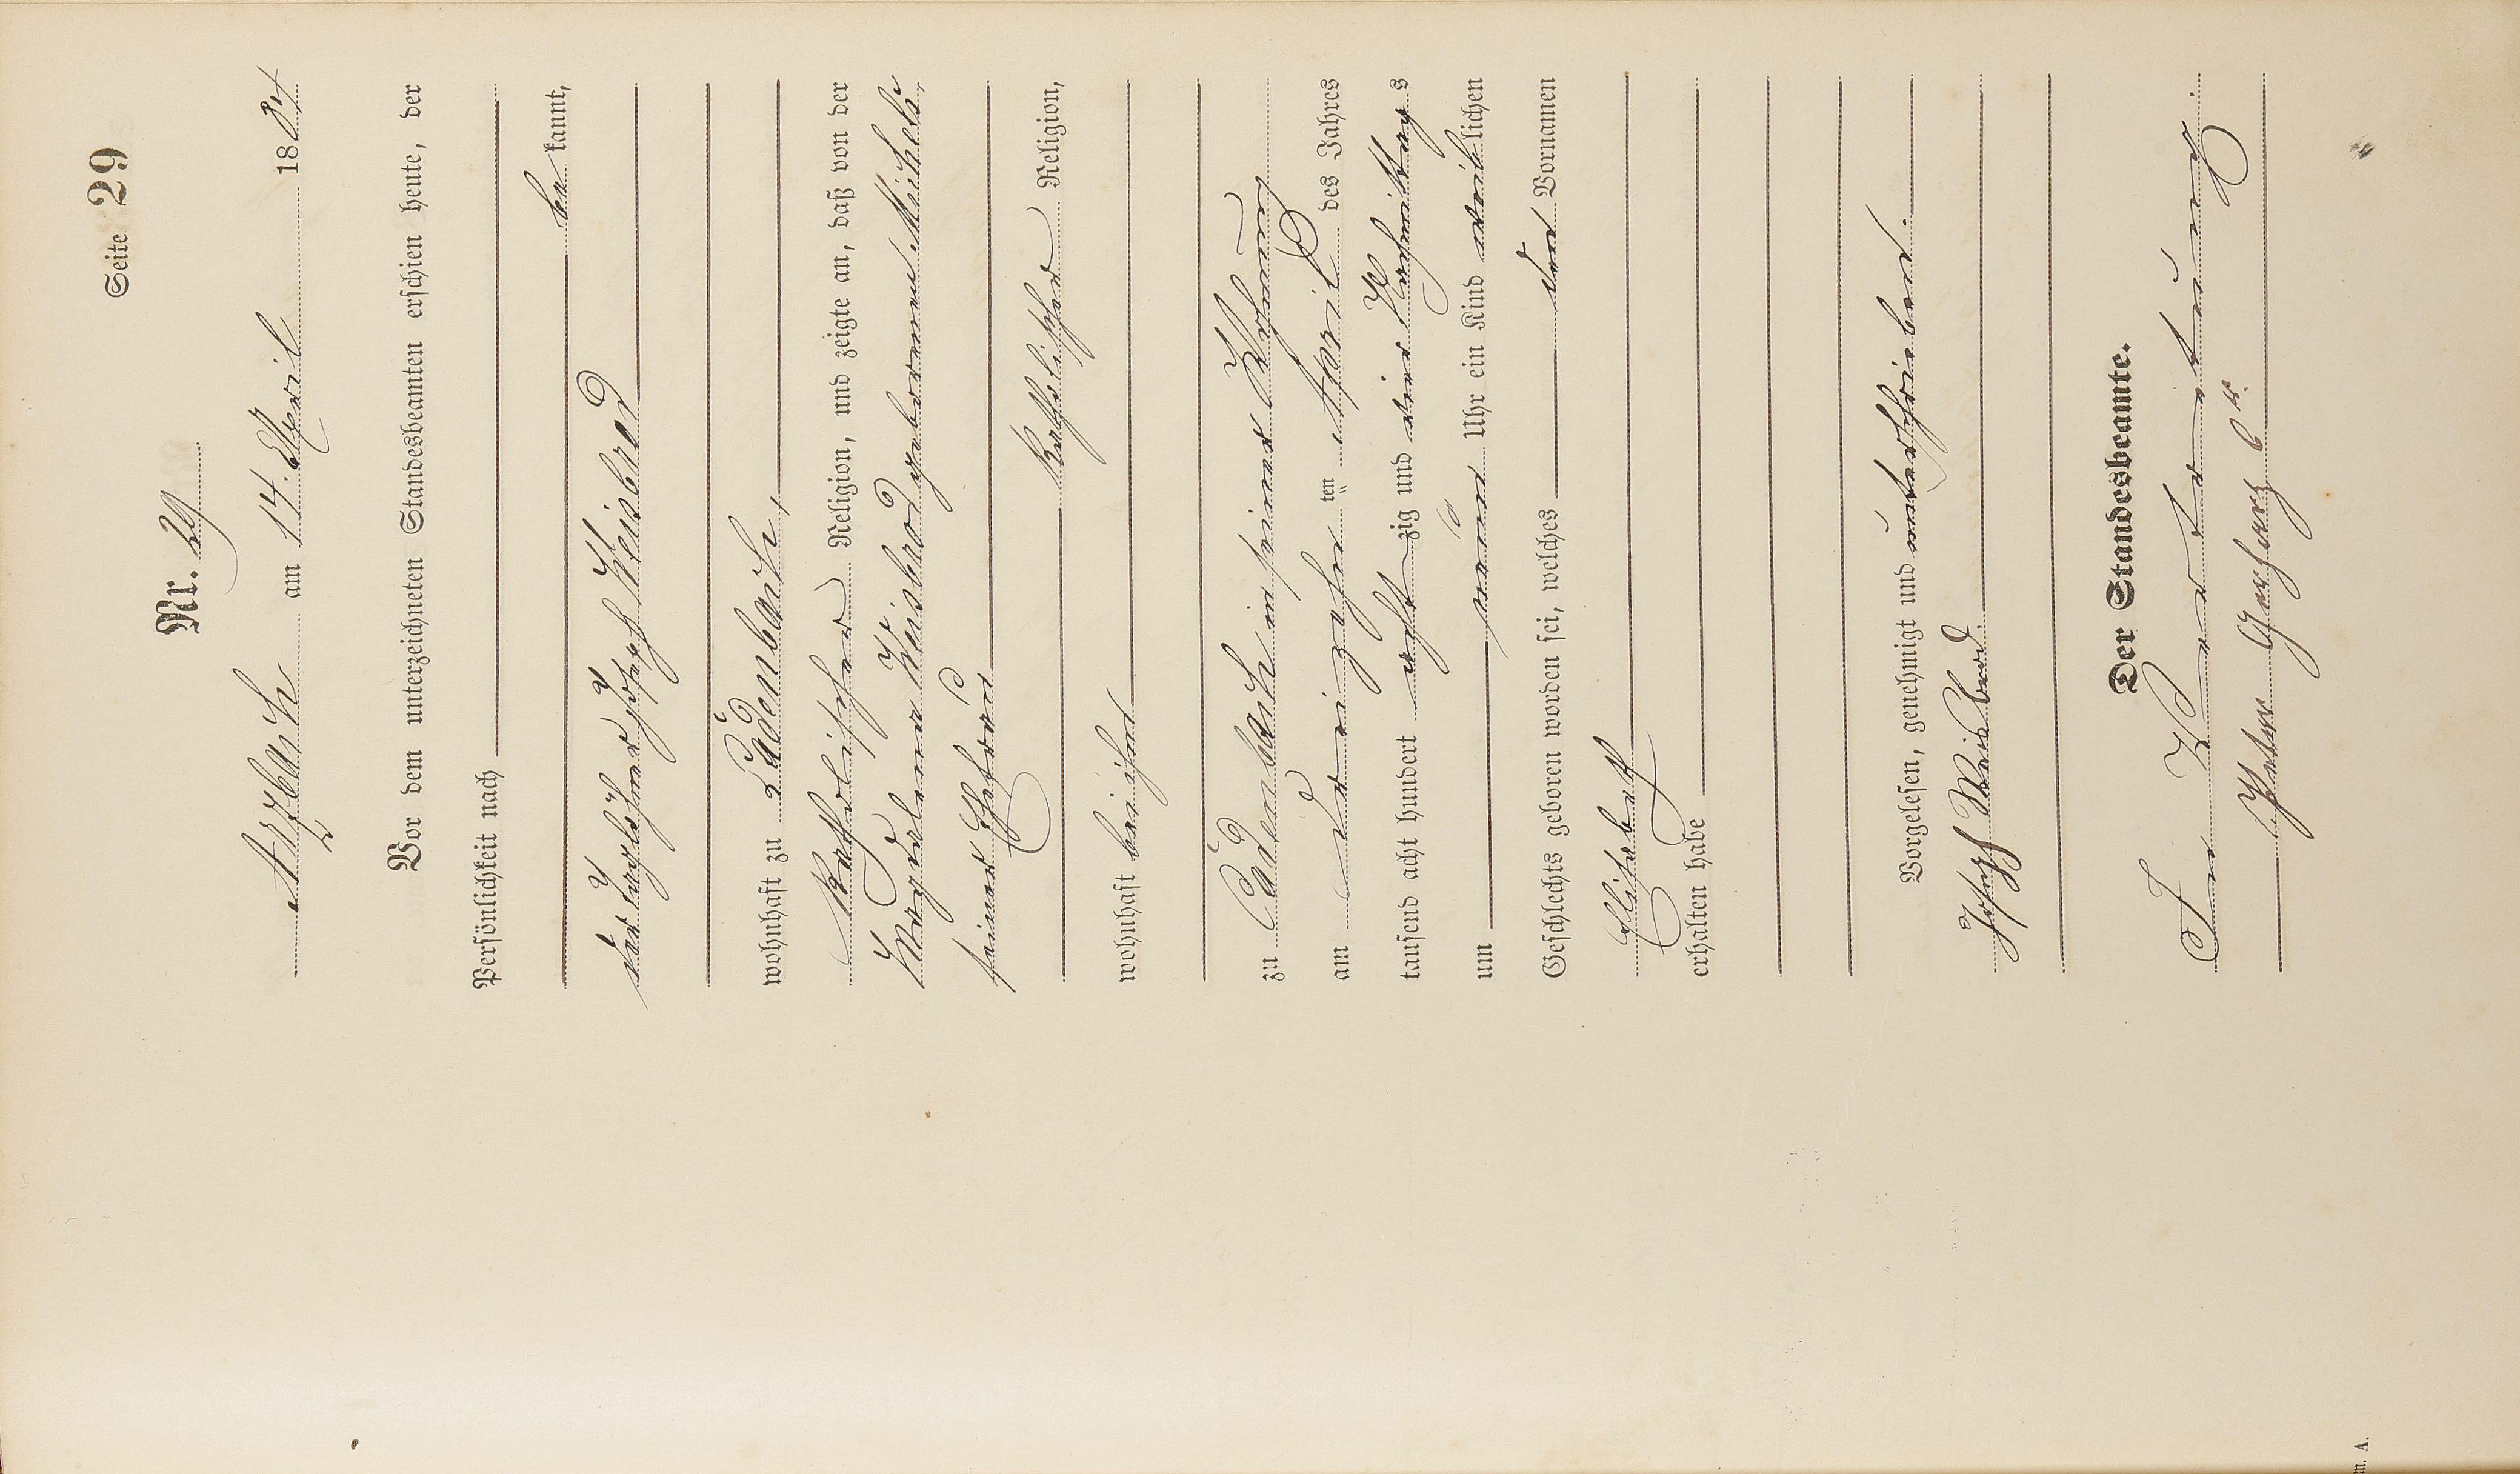 Seite 29
Nr. 29
Arzbach am 14. April 1884
Vor dem unterzeichneten Standesbeamten erschien heute, der
Persönlichkeit nach
be kannt,
der Taglöhner Joseph Weisbrod
wohnhaft zu Cadenbach,
katholischer Religion, und zeigte an, daß von der
Magdalena Weisbrod gebornene Michels,
seiner Ehefrau
katholischer Religion,
wohnhaft bei ihm
zu Cadenbach in seiner Wohnung
am dreizehn ten April des Jahres
tausend acht hundert acht zig und vier Nachmittags
um neun Uhr ein Kind weib lichen
Geschlechts geboren worden sei, welches den Vornamen
Elisabeth
erhalten habe
Vorgelesen, genehmigt und unterschrieben.
Joseph Weisbrod
Der Standesbeamte.
In Vertretung
Peter Gerharz
m. A.